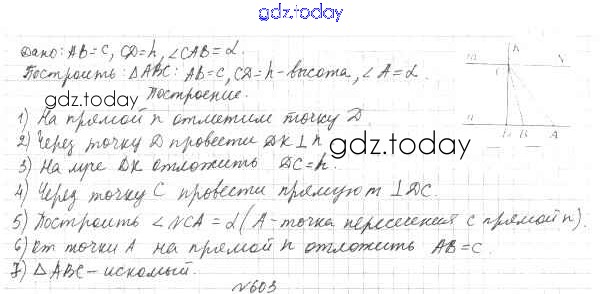 gdz.today
Дано: AB=c, CD=h, ∠CAB=α.
Построить: △ABC: AB=c, CD=h-высота, ∠A=α.
gdz.today
Построение.
1) На прямой n отметим точку D.
2) Через точку D провести DK⊥n
gdz.today
3) На луче DK отложить DC=h.
4) Через точку C провести прямую m⊥DC.
5) Построить ∠NCA=α (A-точка пересечения с прямой n).
6) От точки A на прямой n отложить AB=c.
7) △ABC-искомый.
№603
m
K
N
C
D
B
A